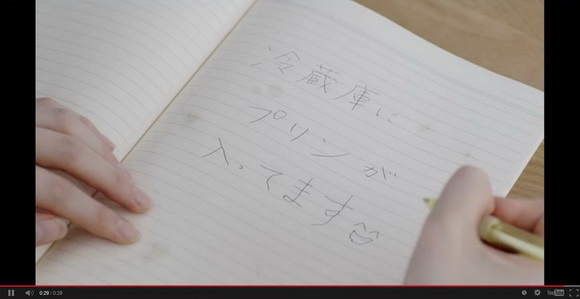 冷蔵庫に
プリンが
入ってます
0:29 / 0:29
YouTube